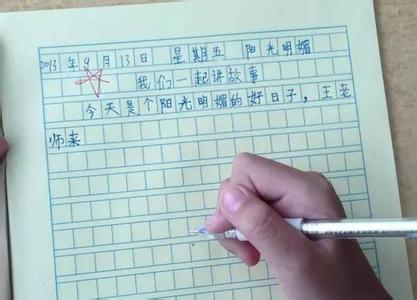 2013年9月13日 星期五 阳光明媚
我们一起讲故事
今天是个阳光明媚的好日子，王老
师来